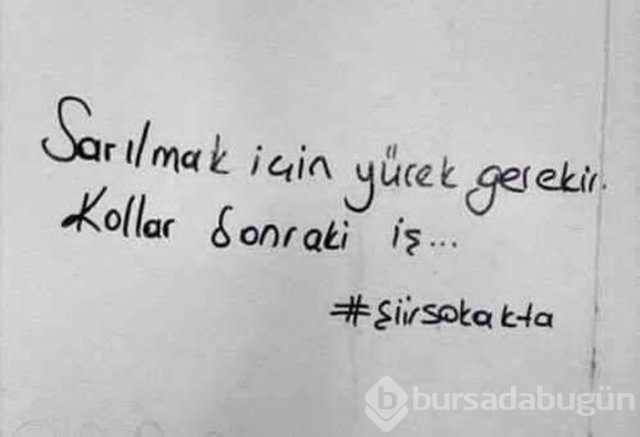 Sarılmak için yürek gerekir.
Kollar sonraki iş...
#şiirsokakta
b bursadabugün